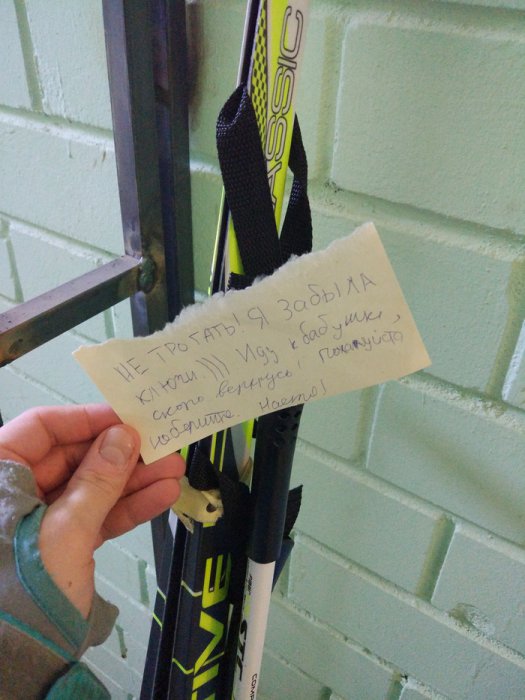 ASSIC
НЕ ТРОГАТЬ! Я ЗАБЫЛА
КЛЮЧИ.))) Иду к бабушке,
скоро вернусь! Пожалуйста
Настя!
TIVE